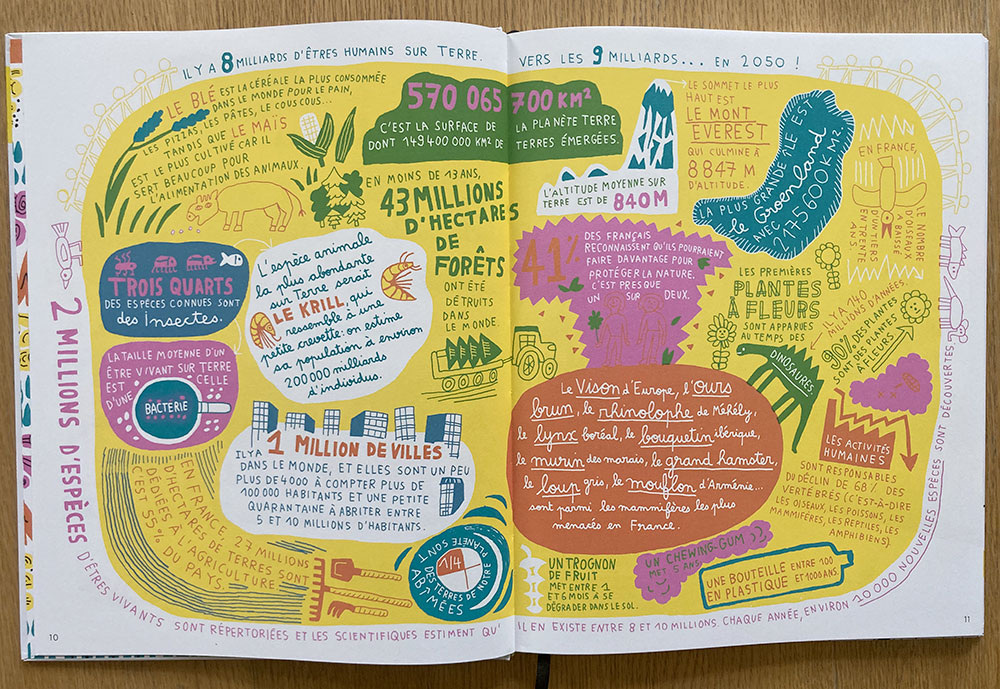 IL Y A 8 MILLIARDS D'ÊTRES HUMAINS SUR TERRE.
VERS LES 9 MILLIARDS... EN 2050 !
LE BLÉ EST LA CÉRÉALE LA PLUS CONSOMMÉE
DANS LE MONDE POUR LE PAIN,
LES PIZZAS, LES PÂTES, LE COUSCOUS...
TANDIS QUE LE MAÏS
EST LE PLUS CULTIVÉ CAR IL
SERT BEAUCOUP POUR
L'ALIMENTATION DES ANIMAUX.
570 065 700 KM²
C'EST LA SURFACE DE LA PLANÈTE TERRE
DONT 149 400 000 KM² DE TERRES ÉMERGÉES.
EN MOINS DE 13 ANS,
43 MILLIONS
D'HECTARES
DE
FORÊTS
ONT ÉTÉ
DÉTRUITS
DANS
LE MONDE.
TROIS QUARTS
DES ESPÈCES CONNUES SONT
des Insectes.
L'espèce animale
la plus abondante
sur Terre serait
LE KRILL, qui
ressemble à une
petite crevette: on estime
sa population à environ
200 000 milliards
d'individus.
LA TAILLE MOYENNE D'UN
ÊTRE VIVANT SUR TERRE
EST CELLE
D'UNE
BACTÉRIE
IL Y A 1 MILLION DE VILLES
DANS LE MONDE, ET ELLES SONT UN PEU
PLUS DE 4000 À COMPTER PLUS DE
100 000 HABITANTS ET UNE PETITE
QUARANTAINE À ABRITER ENTRE
5 ET 10 MILLIONS D'HABITANTS.
EN FRANCE, 27 MILLIONS
D'HECTARES DE TERRES SONT
DÉDIÉES À L'AGRICULTURE
C'EST 55 % DU PAYS.
1/4
DES TERRES DE NOTRE
PLANÈTE SONT
ABÎMÉES
LE SOMMET LE PLUS
HAUT EST
LE MONT
EVEREST
QUI CULMINE À
8 847 M
D'ALTITUDE.
L'ALTITUDE MOYENNE SUR
TERRE EST DE 840 M
LA PLUS GRANDE ÎLE EST
le Groenland
AVEC 2 175 600 KM².
EN FRANCE,
LE NOMBRE
D'OISEAUX
A BAISSÉ
D'UN TIERS
EN TRENTE
ANS.
41%
DES FRANÇAIS
RECONNAISSENT QU'ILS POURRAIENT
FAIRE DAVANTAGE POUR
PROTÉGER LA NATURE.
C'EST PRESQUE
UN SUR DEUX.
LES PREMIÈRES
PLANTES
À FLEURS
SONT APPARUES
AU TEMPS DES
DINOSAURES.
IL Y A 140
MILLIONS D'ANNÉES.
90% DES PLANTES
SONT DES PLANTES
À FLEURS
Le Vison d'Europe, l'ours
brun, le rhinolophe de Méhély,
le lynx boréal, le bouquetin ibérique,
le murin des marais, le grand hamster,
le loup gris, le mouflon d'Arménie...
sont parmi les mammifères les plus
menacés en France.
LES ACTIVITÉS
HUMAINES
SONT RESPONSABLES
DU DÉCLIN DE 68% DES
VERTÉBRÉS (C'EST-À-DIRE
LES OISEAUX, LES POISSONS, LES
MAMMIFÈRES, LES REPTILES, LES
AMPHIBIENS).
UN TROGNON
DE FRUIT
MET ENTRE 1
ET 6 MOIS À SE
DÉGRADER DANS LE SOL.
UN CHEWING-GUM
MET 5 ANS
UNE BOUTEILLE ENTRE 100
EN PLASTIQUE ET 1000 ANS.
2 MILLIONS D'ESPÈCES D'ÊTRES VIVANTS SONT RÉPERTORIÉES ET LES SCIENTIFIQUES ESTIMENT QU'IL EN EXISTE ENTRE 8 ET 10 MILLIONS. CHAQUE ANNÉE, ENVIRON 20 000 NOUVELLES ESPÈCES SONT DÉCOUVERTES
10
11